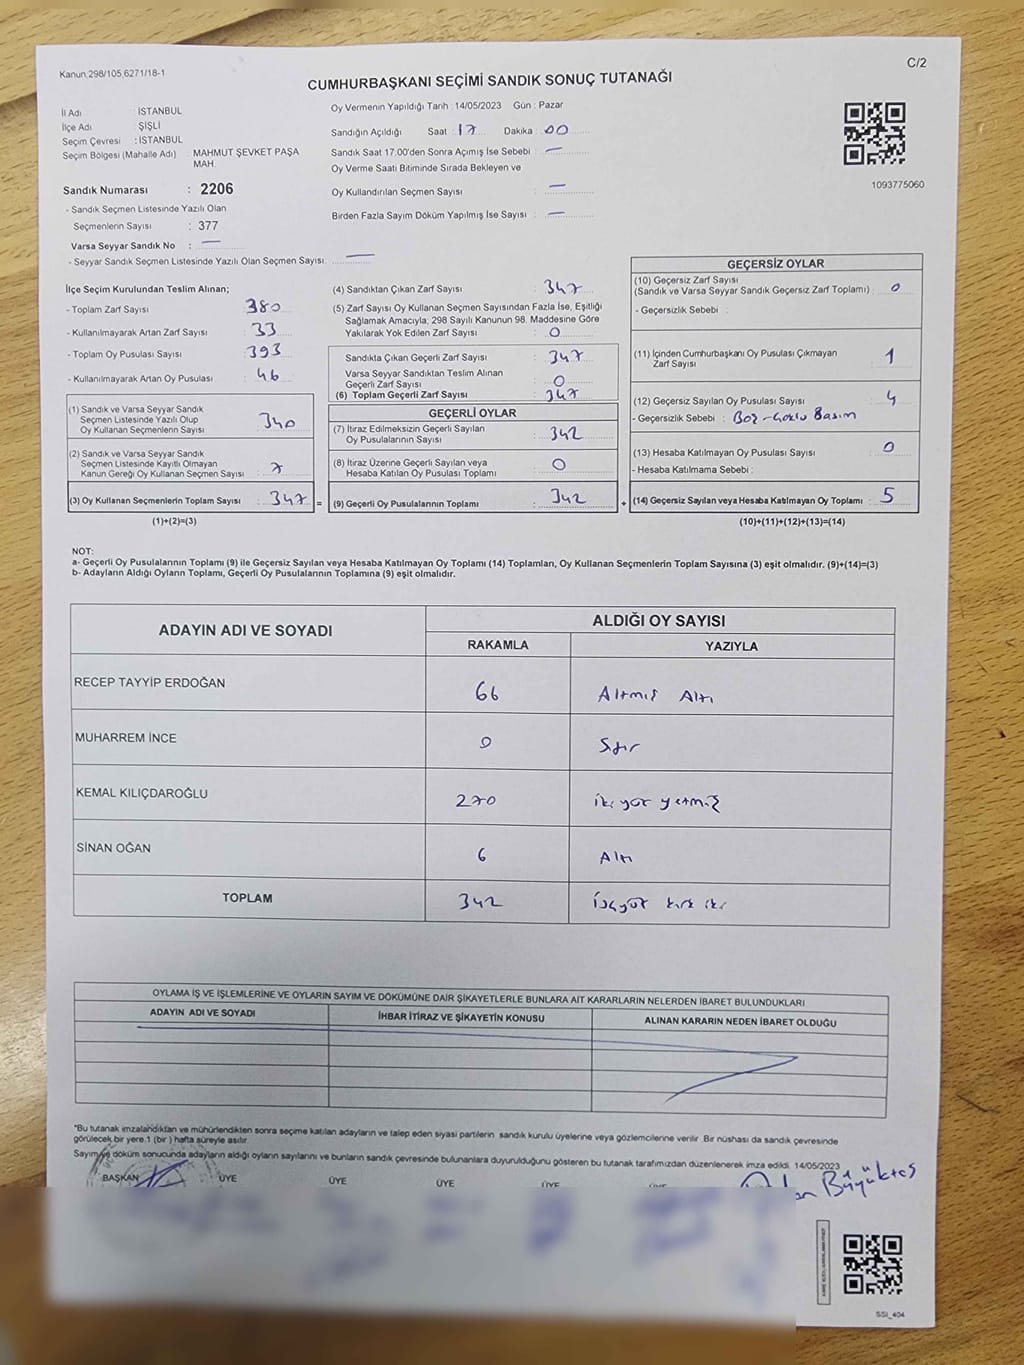 Kanun:298/105,6271/18-1
C/2
CUMHURBAŞKANI SEÇİMİ SANDIK SONUÇ TUTANAĞI
İl Adı : İSTANBUL
İlçe Adı : ŞİŞLİ
Seçim Çevresi : İSTANBUL
Seçim Bölgesi (Mahalle Adı) MAHMUT ŞEVKET PAŞA
MAH.
Sandık Numarası : 2206
- Sandık Seçmen Listesinde Yazılı Olan
Seçmenlerin Sayısı : 377
Varsa Seyyar Sandık No : —
- Seyyar Sandık Seçmen Listesinde Yazılı Olan Seçmen Sayısı: —
Oy Vermenin Yapıldığı Tarih : 14/05/2023 Gün : Pazar
Sandığın Açıldığı Saat : 17 Dakika : 00
Sandık Saat 17:00'den Sonra Açımış İse Sebebi : —
Oy Verme Saati Bitiminde Sırada Bekleyen ve
Oy Kullandırılan Seçmen Sayısı : —
Birden Fazla Sayım Döküm Yapılmış İse Sayısı : —
1093775060
İlçe Seçim Kurulundan Teslim Alınan;
- Toplam Zarf Sayısı : 380
- Kullanılmayarak Artan Zarf Sayısı : 33
- Toplam Oy Pusulası Sayısı : 393
- Kullanılmayarak Artan Oy Pusulası : 46
(1) Sandık ve Varsa Seyyar Sandık
Seçmen Listesinde Yazılı Olup
Oy Kullanan Seçmenlerin Sayısı : 340
(2) Sandık ve Varsa Seyyar Sandık
Seçmen Listesinde Kayıtlı Olmayan
Kanun Gereği Oy Kullanan Seçmen Sayısı : 7
(3) Oy Kullanan Seçmenlerin Toplam Sayısı : 347 =
(1)+(2)=(3)
(4) Sandıktan Çıkan Zarf Sayısı : 347
(5) Zarf Sayısı Oy Kullanan Seçmen Sayısından Fazla İse, Eşitliği
Sağlamak Amacıyla; 298 Sayılı Kanunun 98. Maddesine Göre
Yakılarak Yok Edilen Zarf Sayısı : 0
Sandıkta Çıkan Geçerli Zarf Sayısı : 347
Varsa Seyyar Sandıktan Teslim Alınan
Geçerli Zarf Sayısı : 0
(6) Toplam Geçerli Zarf Sayısı : 347
GEÇERLİ OYLAR
(7) İtiraz Edilmeksizin Geçerli Sayılan
Oy Pusulalarının Sayısı : 342
(8) İtiraz Üzerine Geçerli Sayılan veya
Hesaba Katılan Oy Pusulası Toplamı : 0
(9) Geçerli Oy Pusulalarının Toplamı : 342 +
GEÇERSİZ OYLAR
(10) Geçersiz Zarf Sayısı
(Sandık ve Varsa Seyyar Sandık Geçersiz Zarf Toplamı) : 0
- Geçersizlik Sebebi :
(11) İçinden Cumhurbaşkanı Oy Pusulası Çıkmayan
Zarf Sayısı : 1
(12) Geçersiz Sayılan Oy Pusulası Sayısı : 4
- Geçersizlik Sebebi : Boş-Çoklu Basım
(13) Hesaba Katılmayan Oy Pusulası Sayısı : 0
- Hesaba Katılmama Sebebi :
(14) Geçersiz Sayılan veya Hesaba Katılmayan Oy Toplamı : 5
(10)+(11)+(12)+(13)=(14)
NOT:
a- Geçerli Oy Pusulalarının Toplamı (9) ile Geçersiz Sayılan veya Hesaba Katılmayan Oy Toplamı (14) Toplamları, Oy Kullanan Seçmenlerin Toplam Sayısına (3) eşit olmalıdır. (9)+(14)=(3)
b- Adayların Aldığı Oyların Toplamı, Geçerli Oy Pusulalarının Toplamına (9) eşit olmalıdır.
ADAYIN ADI VE SOYADI
ALDIĞI OY SAYISI
RAKAMLA YAZIYLA
RECEP TAYYİP ERDOĞAN 66 Altmış Altı
MUHARREM İNCE 0 Sıfır
KEMAL KILIÇDAROĞLU 270 ikiyüz yetmiş
SİNAN OĞAN 6 Altı
TOPLAM 342 üçyüz kırk iki
OYLAMA İŞ VE İŞLEMLERİNE VE OYLARIN SAYIM VE DÖKÜMÜNE DAİR ŞİKAYETLERLE BUNLARA AİT KARARLARIN NELERDEN İBARET BULUNDUKLARI
ADAYIN ADI VE SOYADI İHBAR İTİRAZ VE ŞİKAYETİN KONUSU ALINAN KARARIN NEDEN İBARET OLDUĞU
*Bu tutanak imzalandıktan ve mühürlendikten sonra seçime katılan adayların ve talep eden siyasi partilerin sandık kurulu üyelerine veya gözlemcilerine verilir. Bir nüshası da sandık çevresinde
görülecek bir yere 1 (bir ) hafta süreyle asılır.
Sayım ve döküm sonucunda adayların aldığı oyların sayılarını ve bunların sandık çevresinde bulunanlara duyurulduğunu gösteren bu tutanak tarafımızdan düzenlenerek imza edildi. 14/05/2023
BAŞKAN ÜYE ÜYE ÜYE ÜYE ÜYE
Büyüktaş
SSI_404